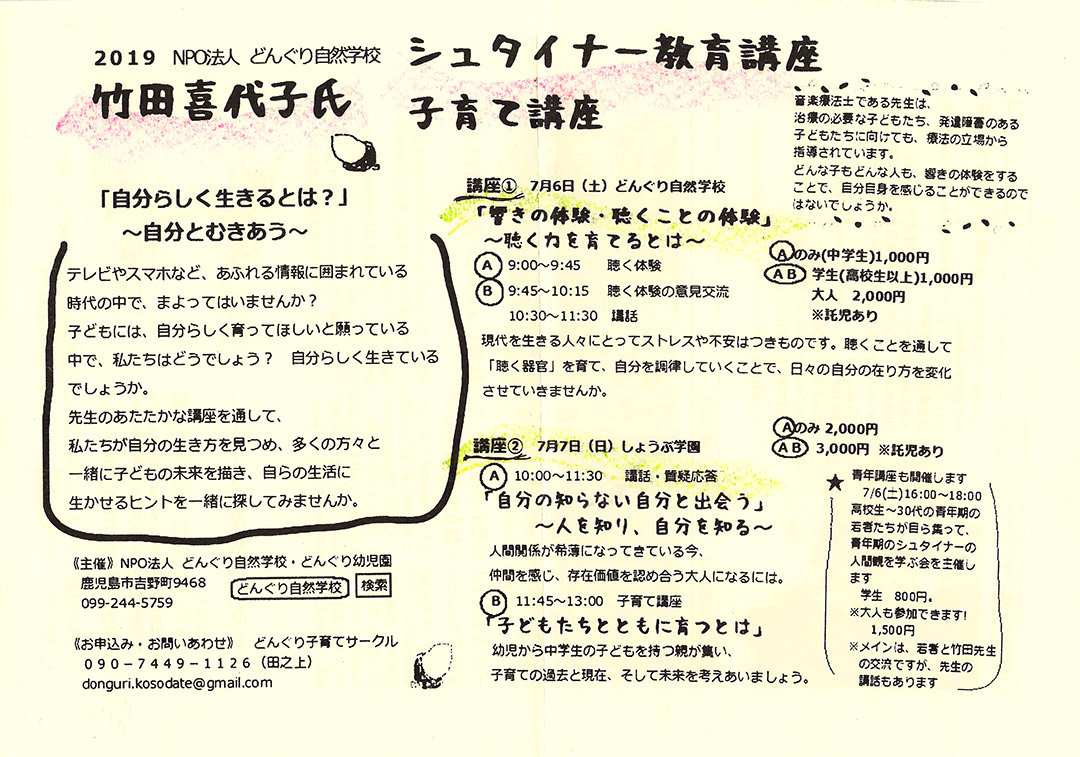 2019 NPO法人 どんぐり自然学校 シュタイナー教育講座
竹田喜代子氏 子育て講座
音楽療法士である先生は、
治療の必要な子どもたち、発達障害のある
子どもたちに向けても、療法の立場から
指導されています。
どんな子もどんな人も、響きの体験をする
ことで、自分自身を感じることができるので
はないでしょうか。
「自分らしく生きるとは？」
～自分とむきあう～
テレビやスマホなど、あふれる情報に囲まれている
時代の中で、まよってはいませんか？
子どもには、自分らしく育ってほしいと願っている
中で、私たちはどうでしょう？ 自分らしく生きている
でしょうか。
先生のあたたかな講座を通して、
私たちが自分の生き方を見つめ、多くの方々と
一緒に子どもの未来を描き、自らの生活に
生かせるヒントを一緒に探してみませんか。
《主催》NPO法人 どんぐり自然学校・どんぐり幼児園
鹿児島市吉野町9468 どんぐり自然学校 検索
099-244-5759
《お申込み・お問いあわせ》 どんぐり子育てサークル
090-7449-1126（田之上）
donguri.kosodate@gmail.com
講座① 7月6日（土）どんぐり自然学校
「響きの体験・聴くことの体験」
～聴く力を育てるとは～
A 9:00～9:45 聴く体験
B 9:45～10:15 聴く体験の意見交流
10:30～11:30 講話
Aのみ(中学生)1,000円
AB 学生(高校生以上)1,000円
大人 2,000円
※託児あり
現代を生きる人々にとってストレスや不安はつきものです。聴くことを通して
「聴く器官」を育て、自分を調律していくことで、日々の自分の在り方を変化
させていきませんか。
講座② 7月7日（日）しょうぶ学園
Aのみ 2,000円
AB 3,000円 ※託児あり
A 10:00～11:30 講話・質疑応答
「自分の知らない自分と出会う」
～人を知り、自分を知る～
人間関係が希薄になってきている今、
仲間を感じ、存在価値を認め合う大人になるには。
B 11:45～13:00 子育て講座
「子どもたちとともに育つとは」
幼児から中学生の子どもを持つ親が集い、
子育ての過去と現在、そして未来を考えあいましょう。
★ 青年講座も開催します
7/6(土)16:00～18:00
高校生～30代の青年期の
若者たちが自ら集って、
青年期のシュタイナーの
人間観を学ぶ会を主催し
ます
学生 800円。
※大人も参加できます!
1,500円
※メインは、若者と竹田先生
の交流ですが、先生の
講話もあります